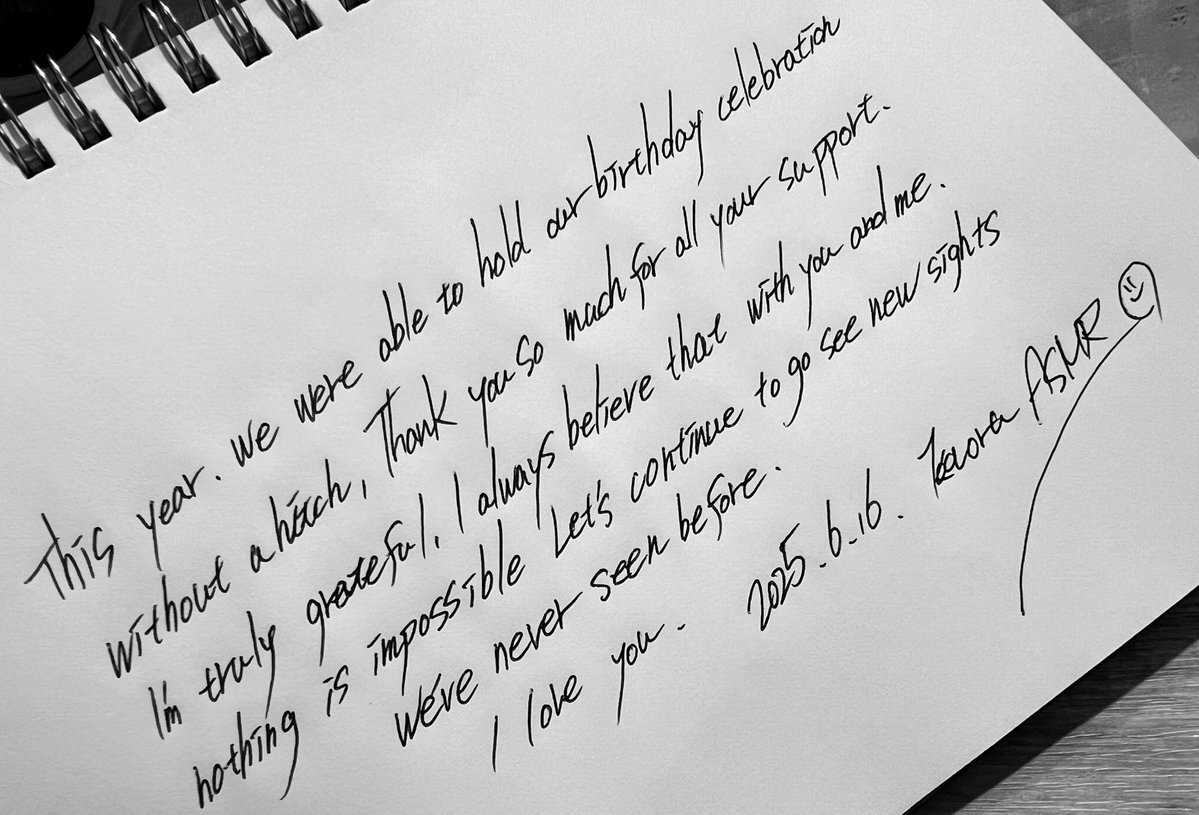 This year. we were able to hold our birthday celebration
without a hitch, Thank you so much for all your support.
I'm truly grateful. I always believe that with you and me.
nothing is impossible Let's continue to go see new sights
we've never seen before.
I love you. 2025.6.16. Kaoru ASMR